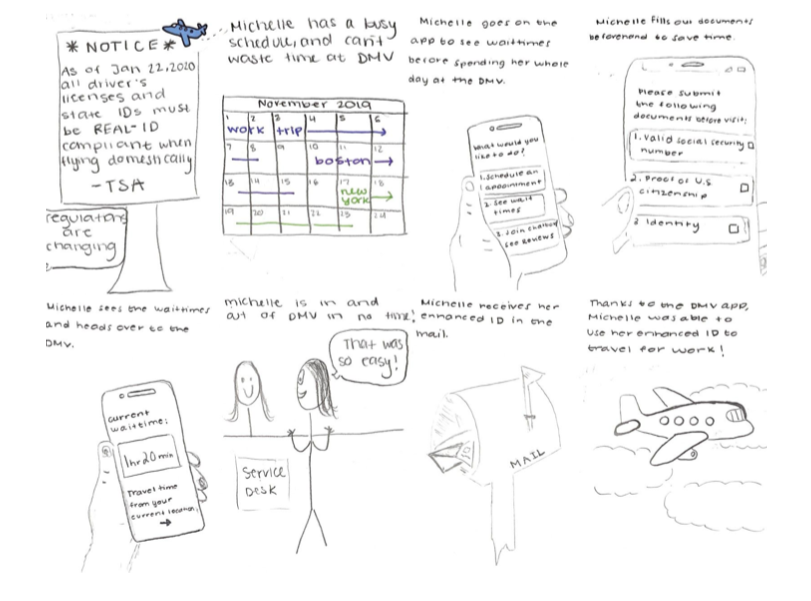 * NOTICE *
As of Jan 22, 2020
all driver's
licenses and
state IDs must
be REAL-ID
compliant when
flying domestically
-TSA
regulations
are
changing
Michelle has a busy
schedule, and can't
waste time at DMV
November 2019
1 2 3 4 5 6
work trip
7 8 9 10 11 12
boston
13 14 15 16 17 18
new
york
19 20 21 22 23 24
Michelle goes on the
app to see waittimes
before spending her whole
day at the DMV.
What would you
like to do?
1. Schedule an
appointment
2. See wait
times
3. Join chatbot
see Reviews
Michelle fills out documents
beforehand to save time.
Please submit
the following
documents before visit:
1. Valid social security
number
2. Proof of U.S
citizenship
3 Identity
Michelle sees the waittimes
and heads over to the
DMV.
current
waittime:
1hr 20 min
Travel time
from your
current location:
michelle is in and
out of DMV in no time!
That was
so easy!
Service
Desk
Michelle receives her
enhanced ID in the
mail.
MAIL
Thanks to the DMV app,
Michelle was able to
use her enhanced ID to
travel for work!